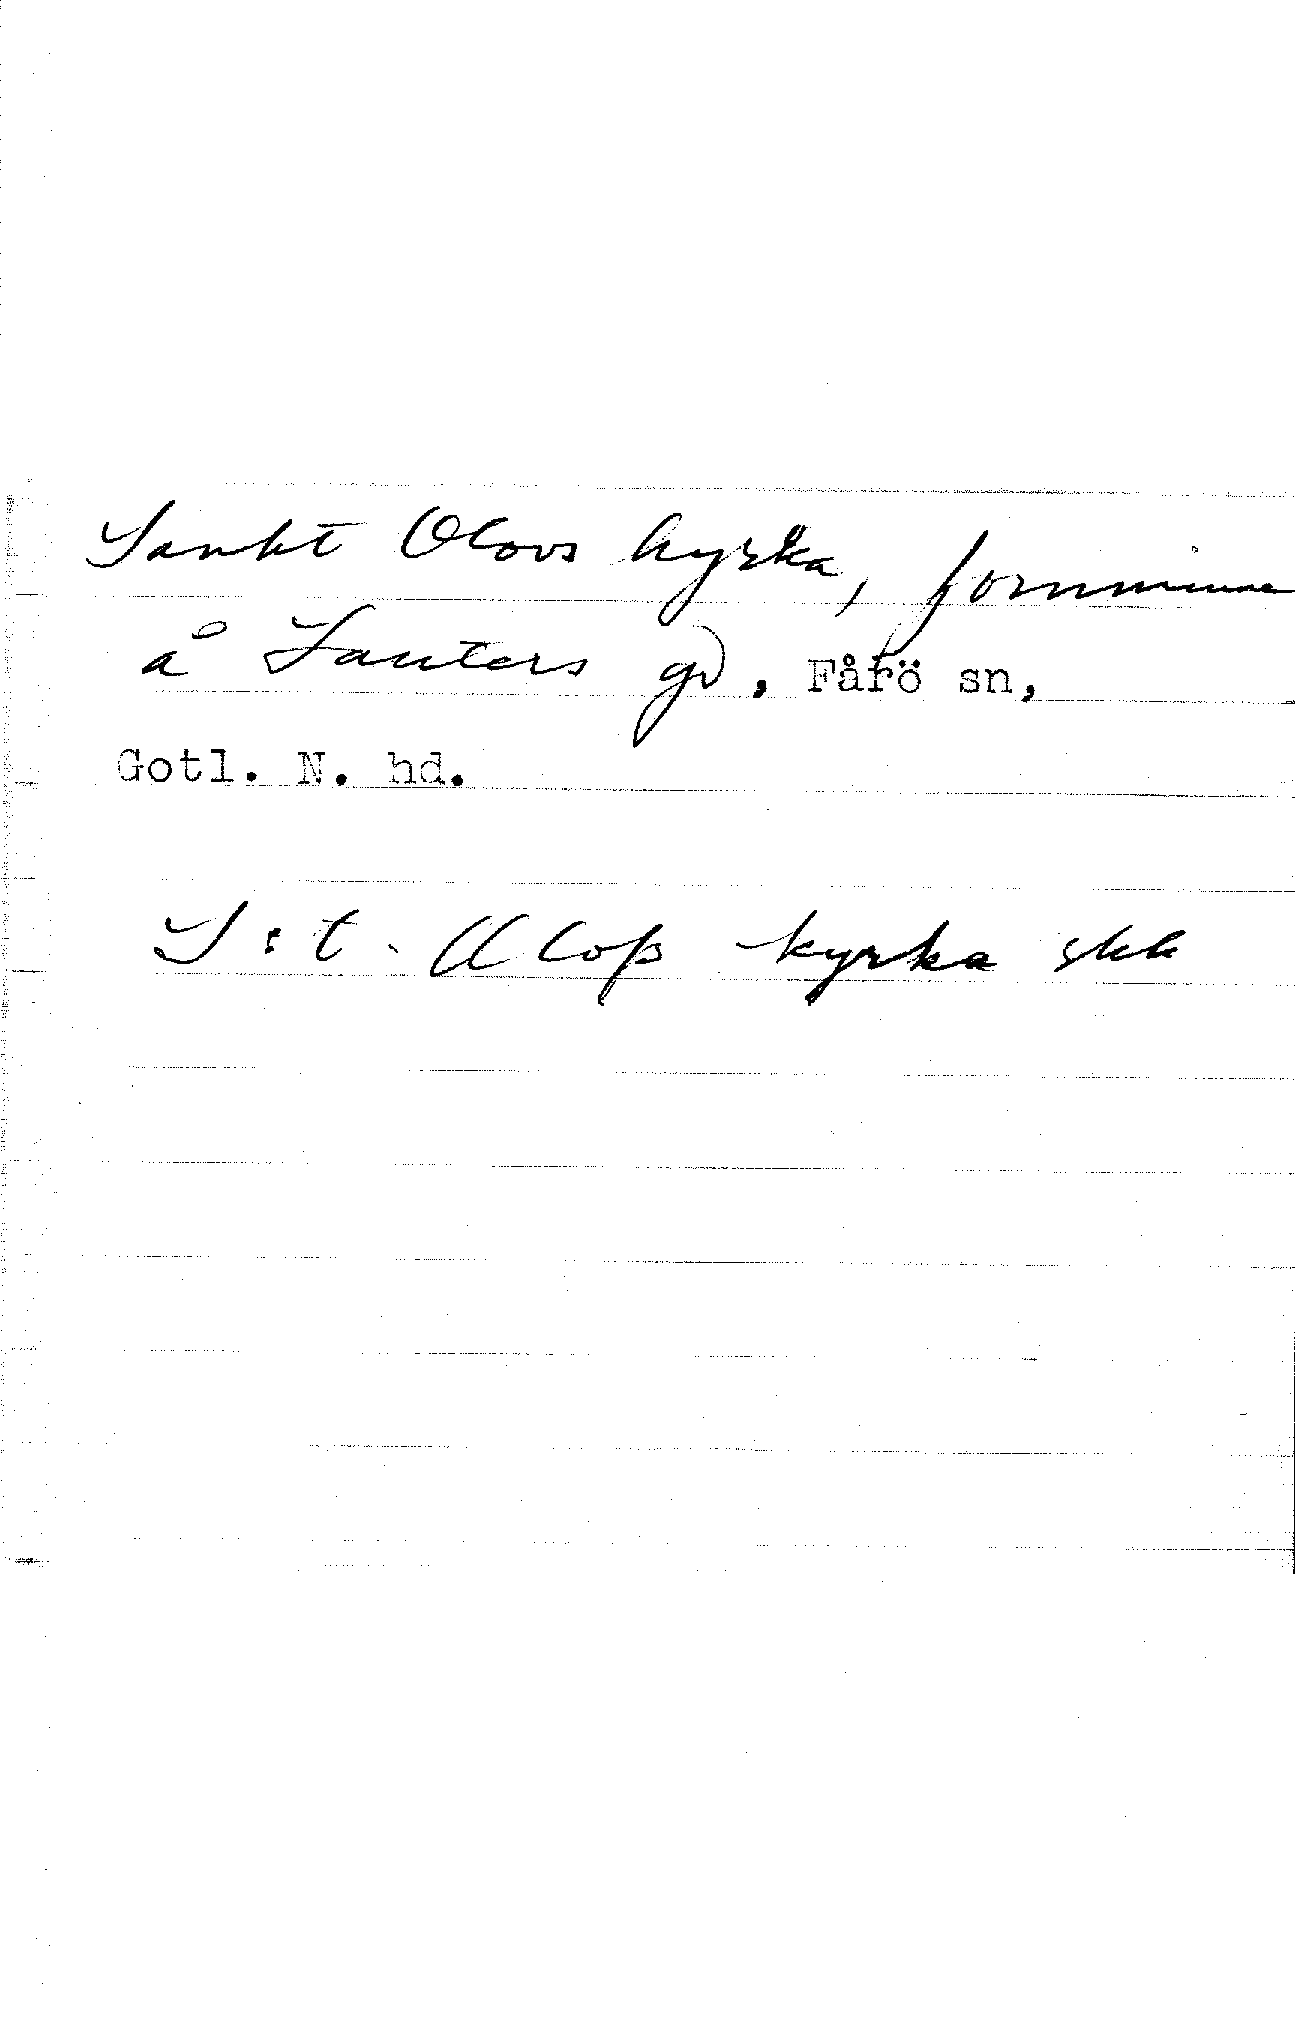 Sankt Olovs kyrka, fornminne
å Lauters gd, Fårö sn,
Gotl. N. hd.
S:t. Olofs kyrka skk